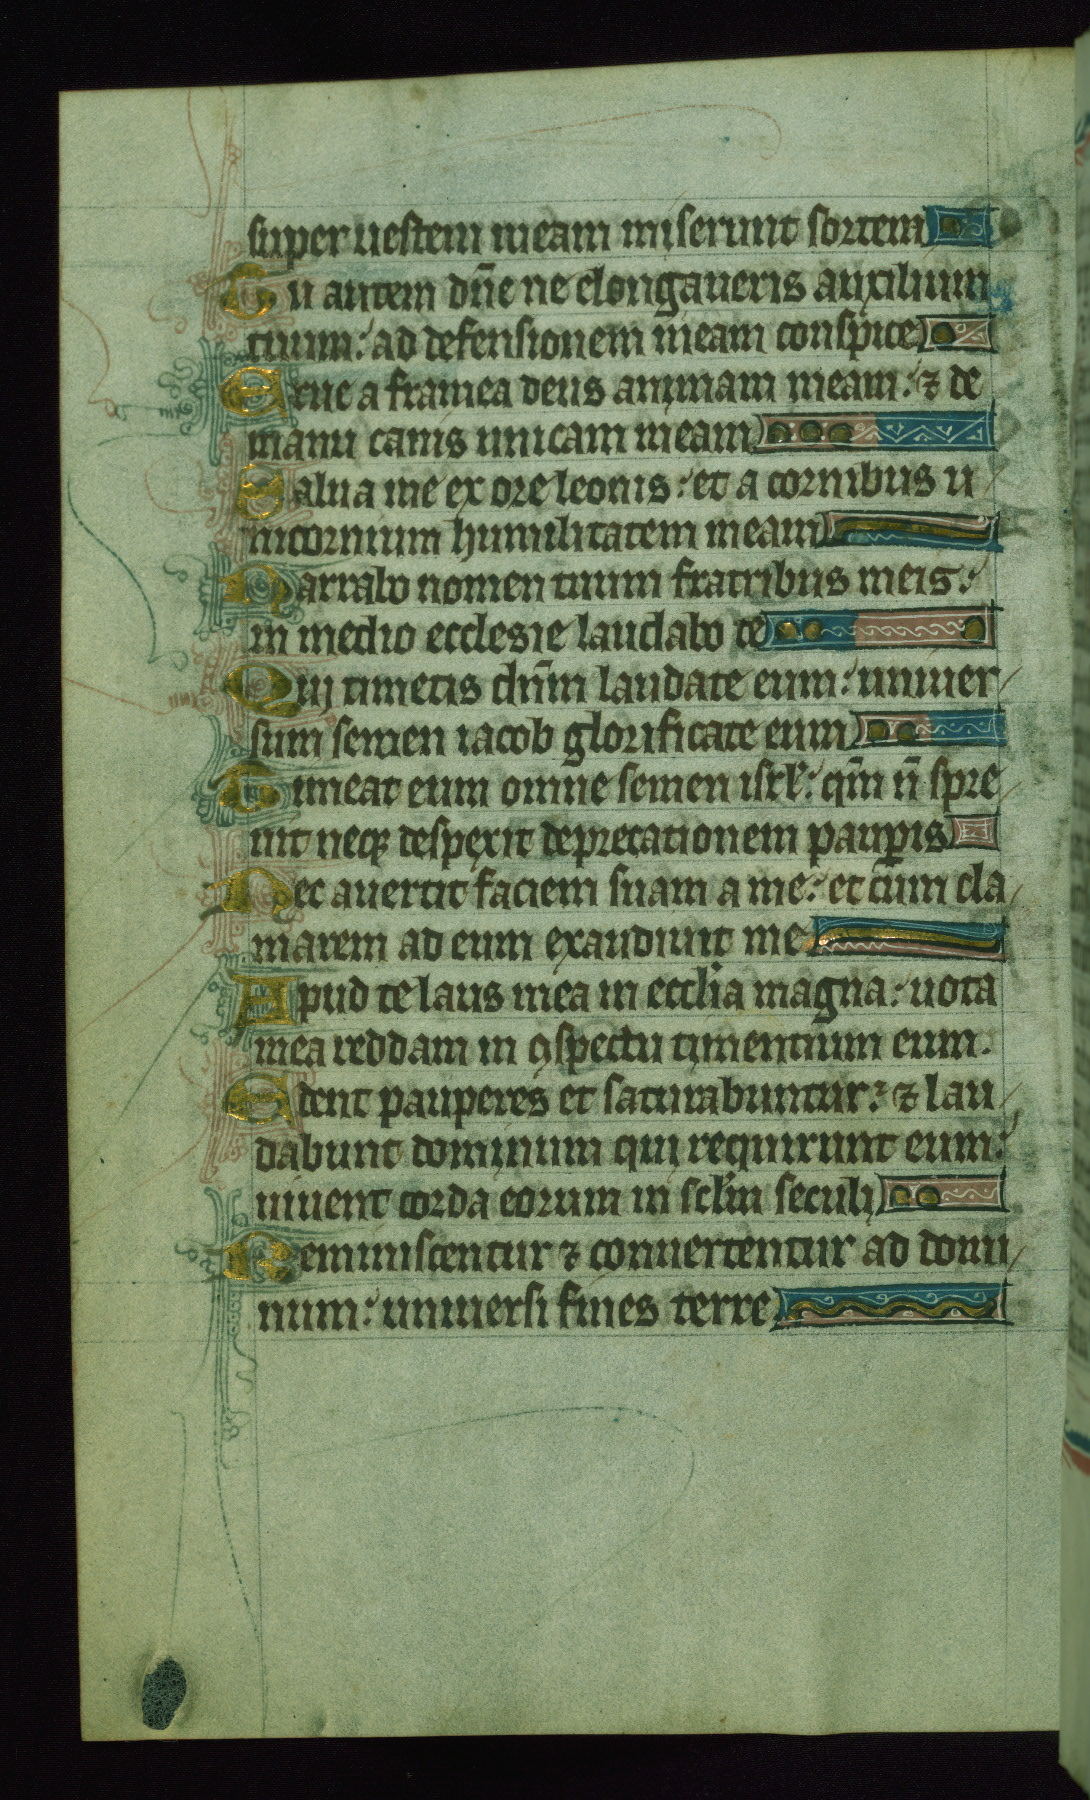 super uestem meam miserunt sortem
Tu autem dn̄e ne elongaueris auxilium
tuum: ad defensionem meam conspice
Erue a framea deus animam meam: ⁊ de
manu canis unicam meam
Salua me ex ore leonis: et a cornibus u
nicornium humilitatem meam
Narrabo nomen tuum fratribus meis:
in medio ecclesie laudabo te
Qui timetis dn̄m laudate eum: uniuer
sum semen iacob glorificate eum
Timeat eum omne semen isrl̓: qm̄ n̄ spre
uit neqꝫ despexit deprecationem paupis
Nec auertit faciem suam a me: et cum cla
marem ad eum exaudiuit me
Apud te laus mea in ecclīa magna: uota
mea reddam in ꝯspectu timentium eum.
Edent pauperes et saturabuntur: ⁊ lau
dabunt dominum qui requirunt eum:
uiuent corda eorum in sclm̄ seculi
Reminiscentur ⁊ conuertentur ad domi
num: uniuersi fines terre